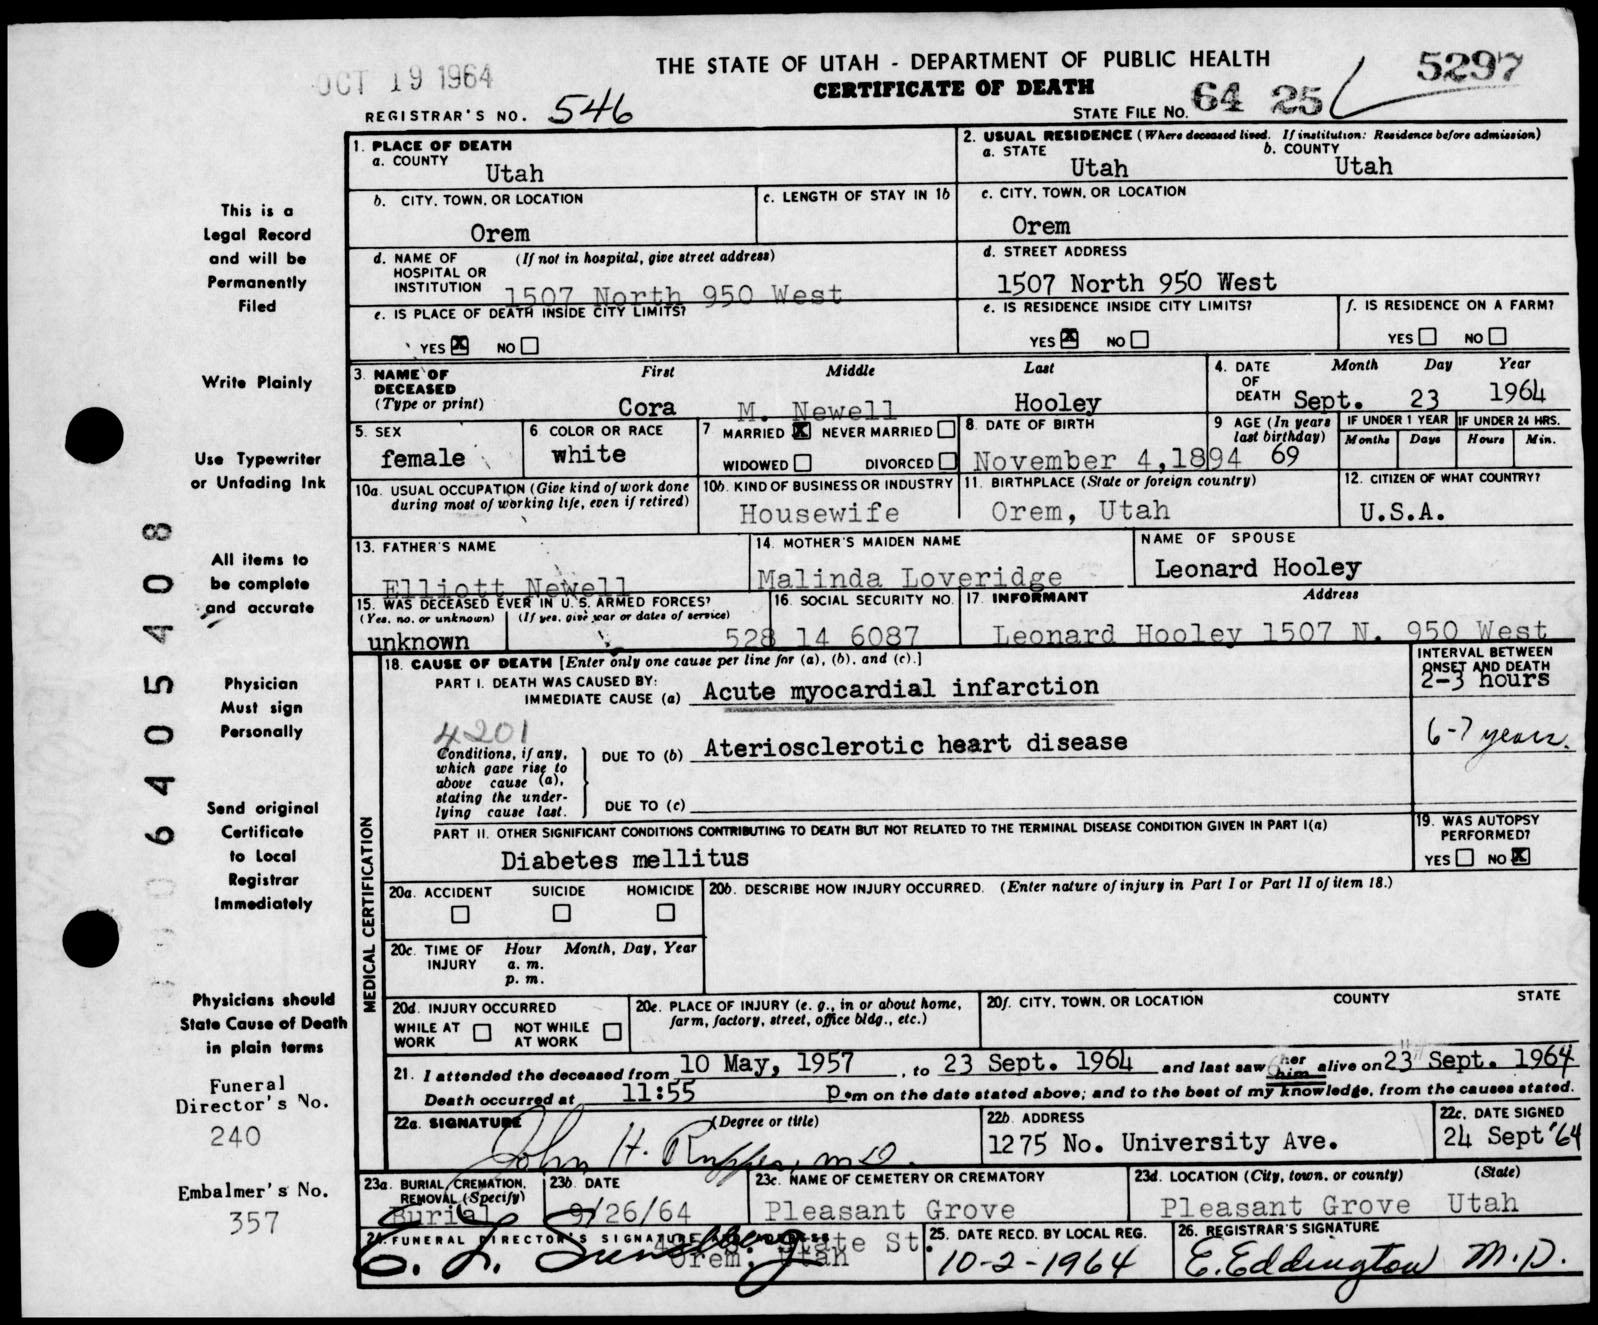 OCT 19 1964
THE STATE OF UTAH - DEPARTMENT OF PUBLIC HEALTH
5297
CERTIFICATE OF DEATH
REGISTRAR'S NO. 546
STATE FILE NO. 64 25
1. PLACE OF DEATH
a. COUNTY
Utah
2. USUAL RESIDENCE (Where deceased lived. If institution: Residence before admission)
a. STATE
Utah
b. COUNTY
Utah
b. CITY, TOWN, OR LOCATION
Orem
c. LENGTH OF STAY IN 1b
c. CITY, TOWN, OR LOCATION
Orem
d. NAME OF HOSPITAL OR INSTITUTION (If not in hospital, give street address)
1507 North 950 West
d. STREET ADDRESS
1507 North 950 West
e. IS PLACE OF DEATH INSIDE CITY LIMITS?
YES X NO
e. IS RESIDENCE INSIDE CITY LIMITS?
YES X NO
f. IS RESIDENCE ON A FARM?
YES NO
3. NAME OF DECEASED (Type or print)
First Middle Last
Cora M. Newell Hooley
4. DATE OF DEATH
Month Day Year
Sept. 23 1964
5. SEX
female
6. COLOR OR RACE
white
7 MARRIED X NEVER MARRIED
WIDOWED DIVORCED
8. DATE OF BIRTH
November 4,1894
9 AGE (In years last birthday)
69
IF UNDER 1 YEAR
Months Days
IF UNDER 24 HRS.
Hours Min.
10a. USUAL OCCUPATION (Give kind of work done during most of working life, even if retired)
10b. KIND OF BUSINESS OR INDUSTRY
Housewife
11. BIRTHPLACE (State or foreign country)
Orem, Utah
12. CITIZEN OF WHAT COUNTRY?
U.S.A.
13. FATHER'S NAME
Elliott Newell
14. MOTHER'S MAIDEN NAME
Malinda Loveridge
NAME OF SPOUSE
Leonard Hooley
15. WAS DECEASED EVER IN U. S. ARMED FORCES?
(Yes, no, or unknown) (If yes, give war or dates of service)
unknown
16. SOCIAL SECURITY NO.
528 14 6087
17. INFORMANT Address
Leonard Hooley 1507 N. 950 West
MEDICAL CERTIFICATION
18. CAUSE OF DEATH [Enter only one cause per line for (a), (b), and (c).]
PART I. DEATH WAS CAUSED BY:
IMMEDIATE CAUSE (a) Acute myocardial infarction
INTERVAL BETWEEN ONSET AND DEATH
2-3 hours
4201
Conditions, if any, which gave rise to above cause (a), stating the underlying cause last.
DUE TO (b) Ateriosclerotic heart disease
6-7 years.
DUE TO (c)
PART II. OTHER SIGNIFICANT CONDITIONS CONTRIBUTING TO DEATH BUT NOT RELATED TO THE TERMINAL DISEASE CONDITION GIVEN IN PART I(a)
Diabetes mellitus
19. WAS AUTOPSY PERFORMED?
YES NO X
20a. ACCIDENT SUICIDE HOMICIDE
20b. DESCRIBE HOW INJURY OCCURRED. (Enter nature of injury in Part I or Part II of item 18.)
20c. TIME OF INJURY
Hour Month, Day, Year
a. m.
p. m.
20d. INJURY OCCURRED
WHILE AT WORK NOT WHILE AT WORK
20e. PLACE OF INJURY (e. g., in or about home, farm, factory, street, office bldg., etc.)
20f. CITY, TOWN, OR LOCATION COUNTY STATE
21. I attended the deceased from 10 May, 1957, to 23 Sept. 1964 and last saw her him alive on 23 Sept. 1964
Death occurred at 11:55 P.m on the date stated above; and to the best of my knowledge, from the causes stated.
22a. SIGNATURE (Degree or title)
John H. Rupper, M.D.
22b. ADDRESS
1275 No. University Ave.
22c. DATE SIGNED
24 Sept '64
23a. BURIAL, CREMATION, REMOVAL (Specify)
Burial
23b. DATE
9/26/64
23c. NAME OF CEMETERY OR CREMATORY
Pleasant Grove
23d. LOCATION (City, town, or county) (State)
Pleasant Grove Utah
24. FUNERAL DIRECTOR'S SIGNATURE ADDRESS
State St.
Orem, Utah
25. DATE RECD. BY LOCAL REG.
10-2-1964
26. REGISTRAR'S SIGNATURE
E. Eddington M.D.
This is a
Legal Record
and will be
Permanently
Filed
Write Plainly
Use Typewriter
or Unfading Ink
All items to
be complete
and accurate
Physician
Must sign
Personally
Send original
Certificate
to Local
Registrar
Immediately
Physicians should
State Cause of Death
in plain terms
Funeral
Director's No.
240
Embalmer's No.
357
6405408